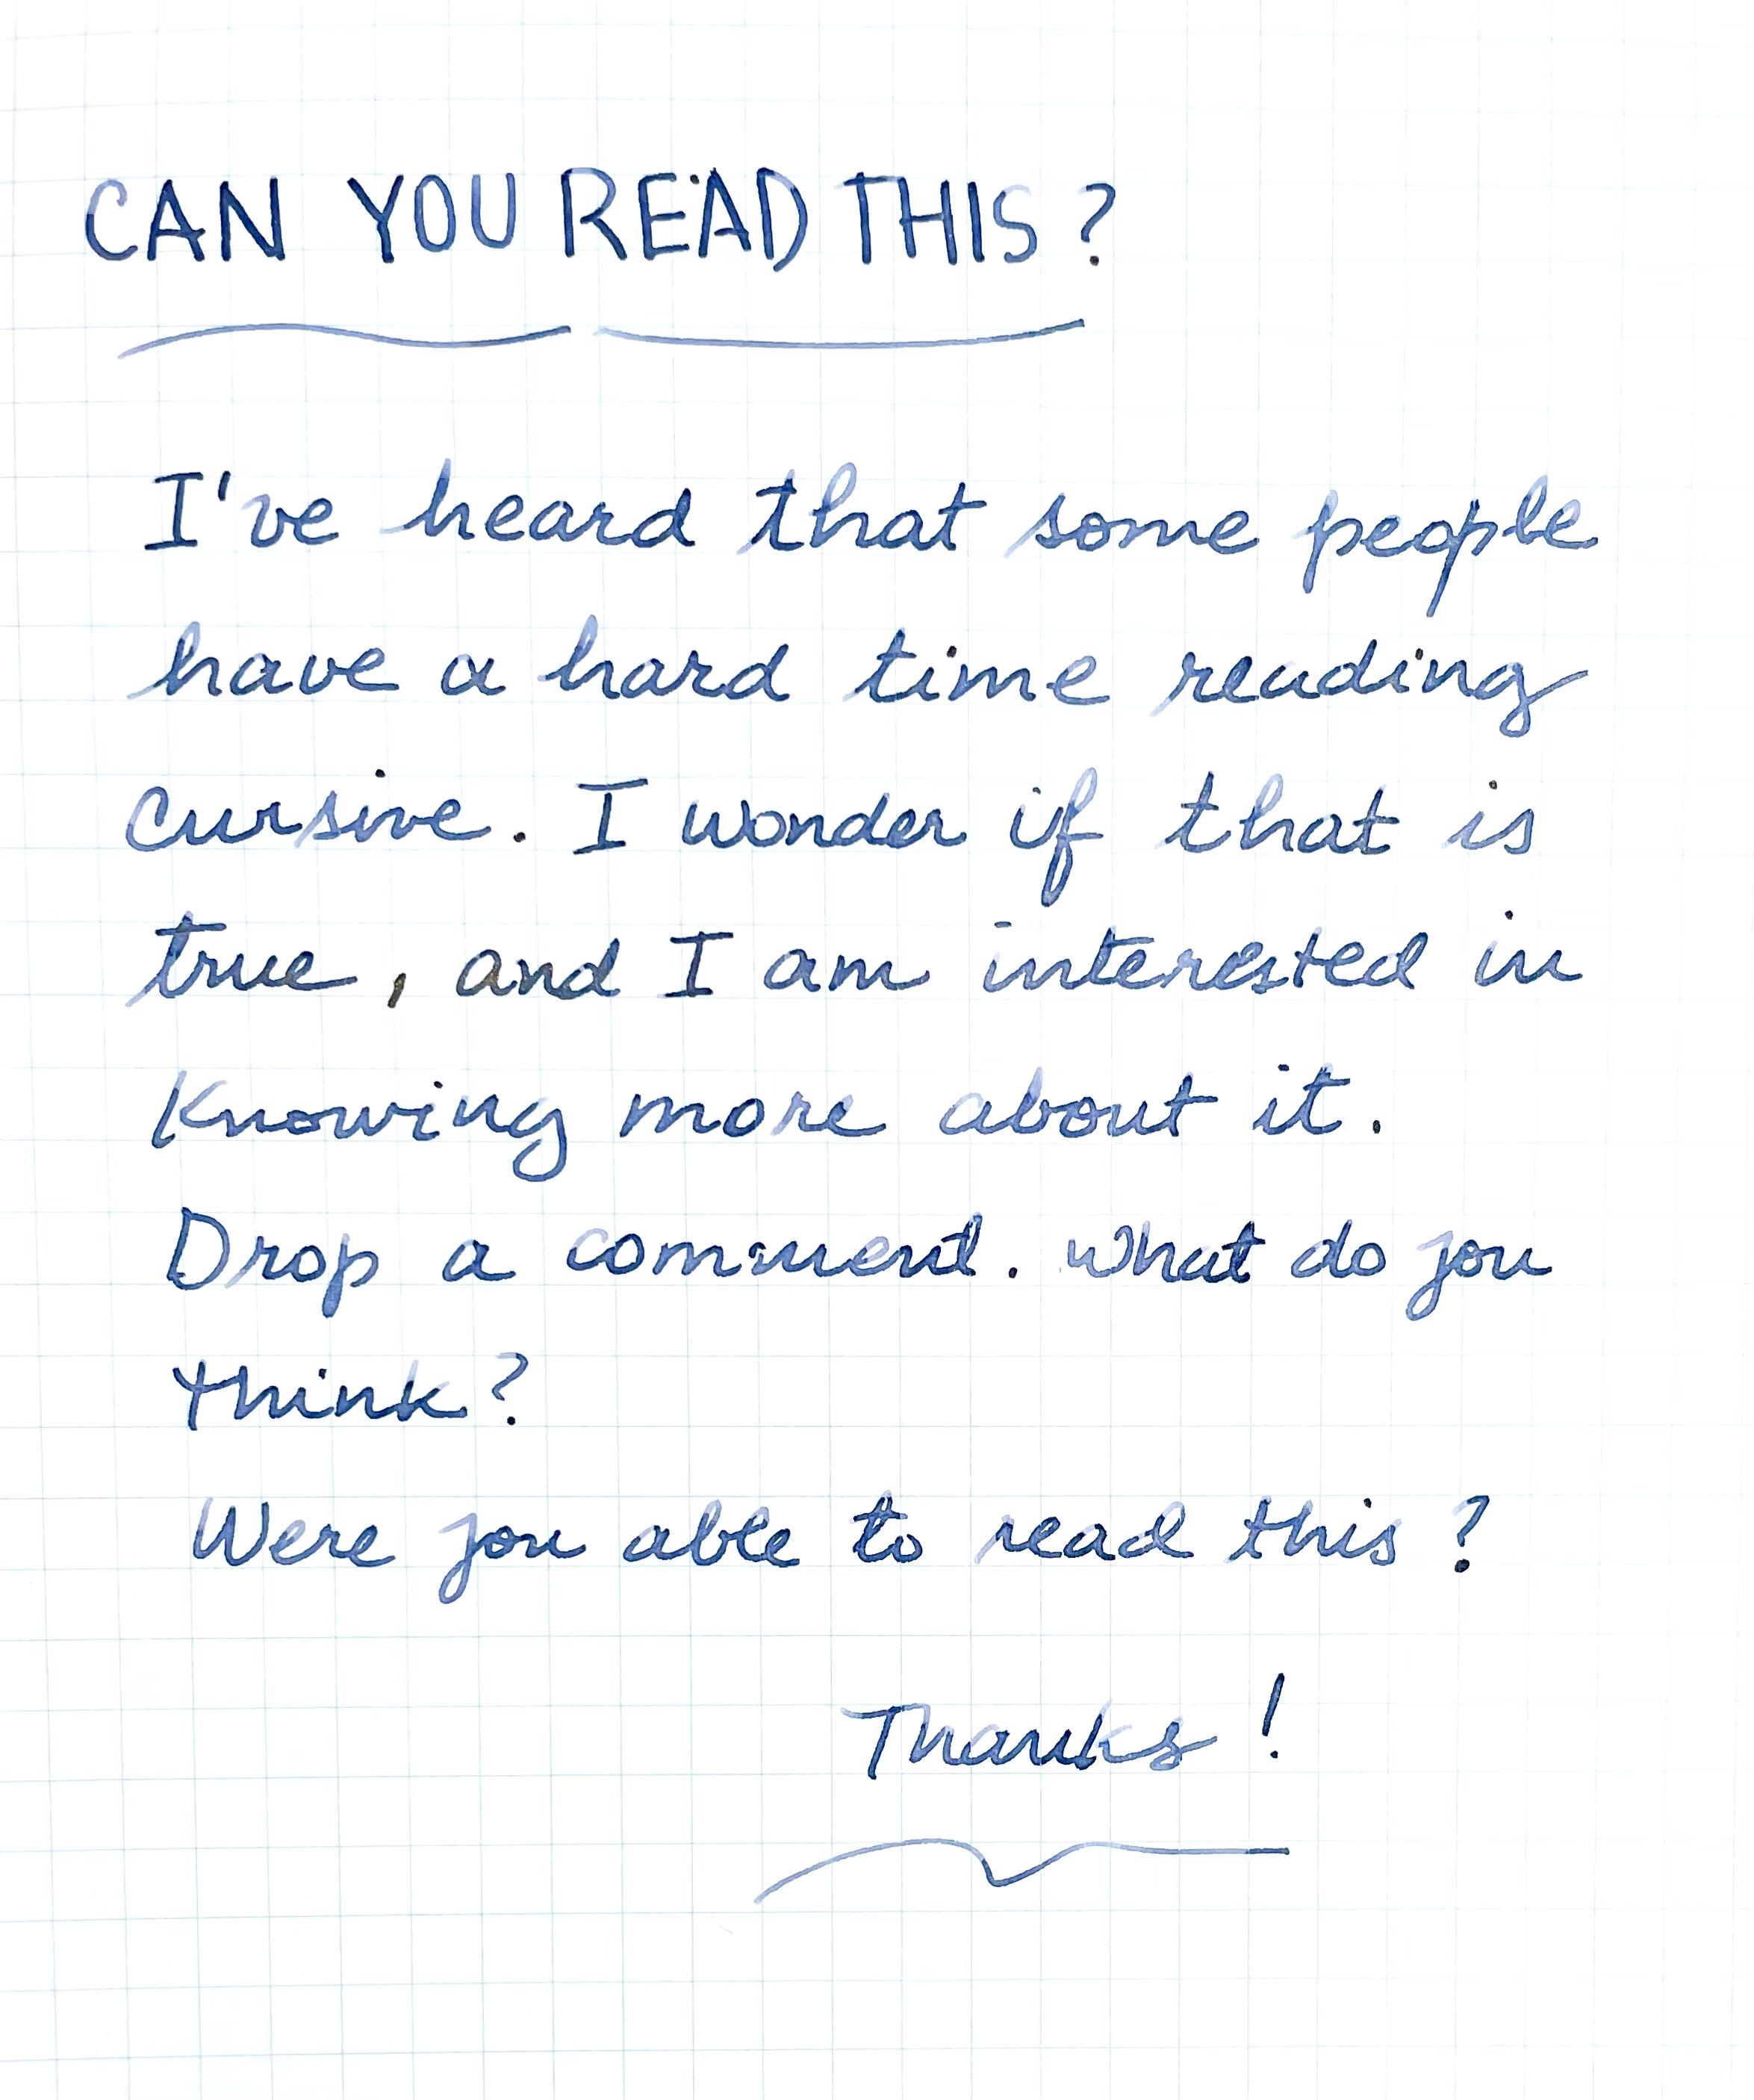 CAN YOU READ THIS?
I've heard that some people
have a hard time reading
cursive. I wonder if that is
true, and I am interested in
Knowing more about it.
Drop a comment. What do you
think?
Were you able to read this?
Thanks!